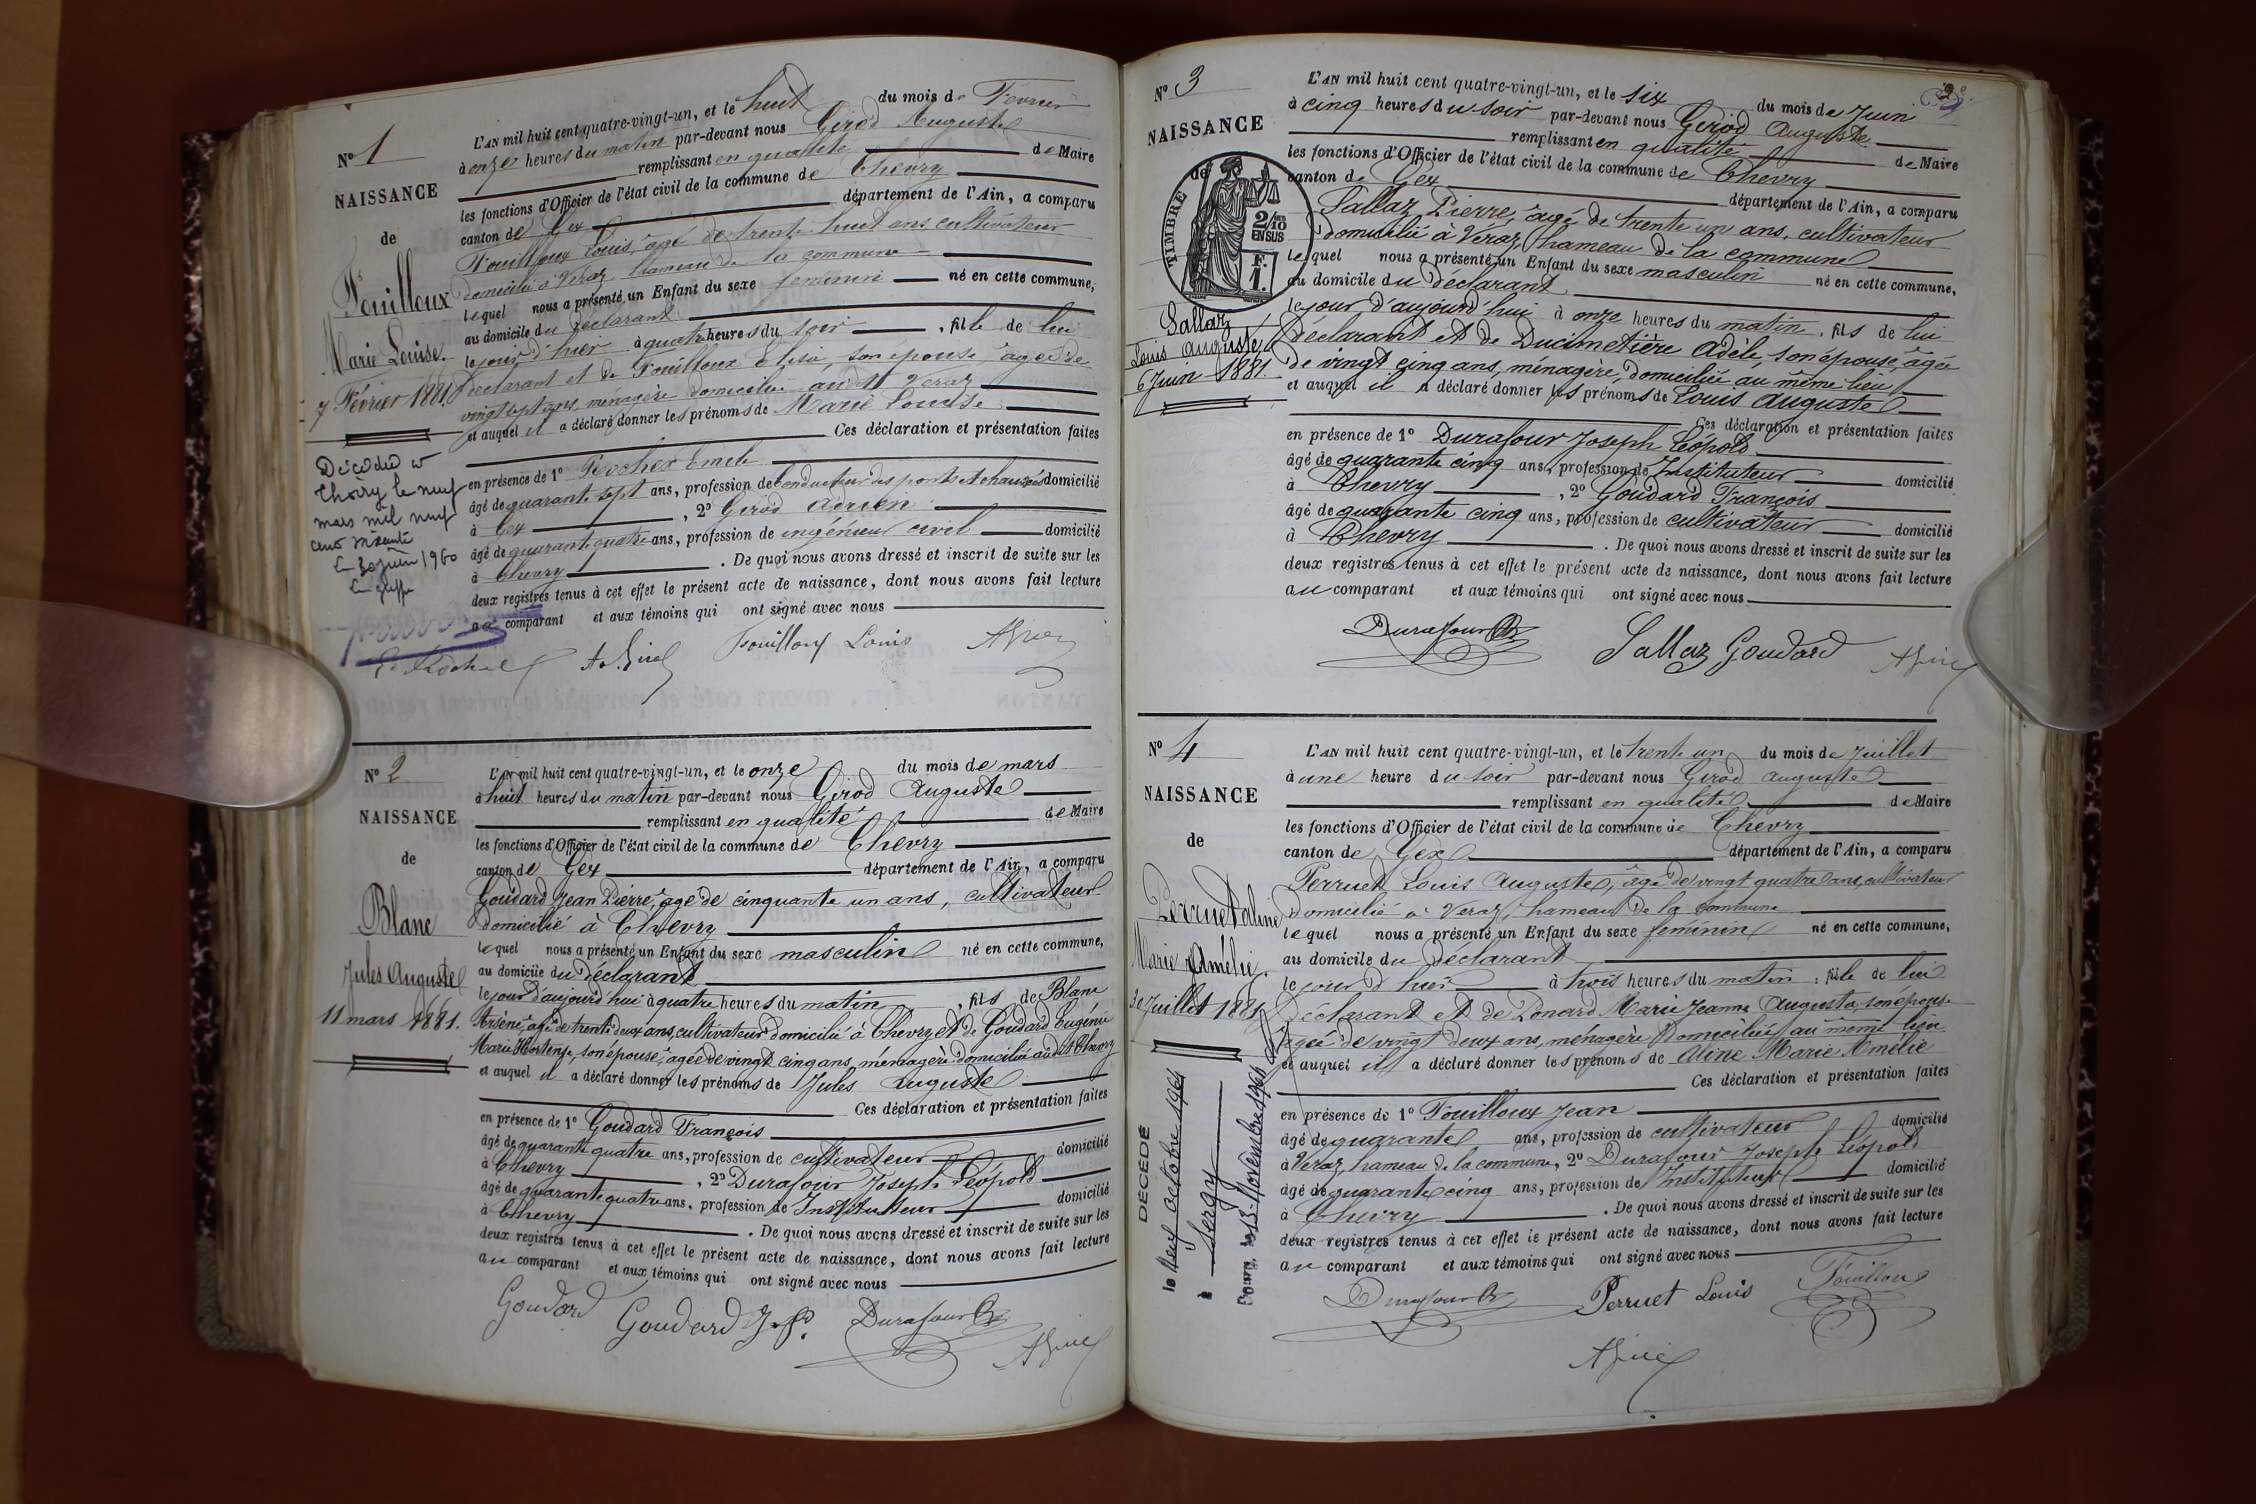 N° 1
NAISSANCE
de
Fouilloux
Marie Louise.
7 Février 1881.
Décédée à
Thoiry le neuf
mars mil neuf
cent soixante
Le 30 juin 1960
Le greffier
L'AN mil huit cent quatre-vingt-un, et le huit du mois de Février
à onze heures du matin par-devant nous Girod Auguste
remplissant en qualité de Maire
les fonctions d'Officier de l'état civil de la commune de Chevry
canton de Gex département de l'Ain, a comparu
Fouilloux Louis, âgé de trente huit ans cultivateur
domicilié à Véraz, hameau de la commune
lequel nous a présenté un Enfant du sexe féminin né en cette commune,
au domicile du déclarant
le jour d'hier à quatre heures du soir , fille de lui
déclarant et de Fouilloux Elisa, son épouse, âgée de
vingt sept ans, ménagère domiciliée audit Veraz
et auquel il a déclaré donner les prénoms de Marie Louise
Ces déclaration et présentation faites
en présence de 1° Rochex Emile
âgé de quarante sept ans, profession de Conducteur des ponts et chaussées domicilié
à Gex , 2° Girod Adrien
âgé de quarante quatre ans, profession de ingénieur civil domicilié
à Chevry . De quoi nous avons dressé et inscrit de suite sur les
deux registres tenus à cet effet le présent acte de naissance, dont nous avons fait lecture
au comparant et aux témoins qui ont signé avec nous
Fouilloux Louis
N° 2
NAISSANCE
de
Blanc
Jules Auguste
11 mars 1881.
L'AN mil huit cent quatre-vingt-un, et le onze du mois de mars
à huit heures du matin par-devant nous Girod Auguste
remplissant en qualité de Maire
les fonctions d'Officier de l'état civil de la commune de Chevry
canton de Gex département de l'Ain, a comparu
Goudard Jean Pierre, âgé de cinquante un ans, cultivateur
domicilié à Chevry
lequel nous a présenté un Enfant du sexe masculin né en cette commune,
au domicile du déclarant
le jour d'aujourd'hui à quatre heures du matin , fils de Blanc
Arsène, âgé de trente deux ans, cultivateur domicilié à Chevry et de Goudard Eugénie
Marie Hortense, son épouse, âgée de vingt cinq ans, ménagère domiciliée audit Chevry
et auquel il a déclaré donner les prénoms de Jules Auguste
Ces déclaration et présentation faites
en présence de 1° Goudard François
âgé de quarante quatre ans, profession de cultivateur domicilié
à Chevry , 2° Durafour Joseph Léopold
âgé de quarante quatre ans, profession de Instituteur domicilié
à Chevry . De quoi nous avons dressé et inscrit de suite sur les
deux registres tenus à cet effet le présent acte de naissance, dont nous avons fait lecture
au comparant et aux témoins qui ont signé avec nous
Goudard Goudard J. P. Durafour
N° 3
NAISSANCE
de
TIMBRE
2/10
EN SUS
F.
1.
Sallaz
Louis Auguste
6 Juin 1881.
L'AN mil huit cent quatre-vingt-un, et le six du mois de Juin
à cinq heures du soir par-devant nous Girod Auguste
remplissant en qualité de Maire
les fonctions d'Officier de l'état civil de la commune de Chevry
canton de Gex département de l'Ain, a comparu
Sallaz Pierre, âgé de trente un ans, cultivateur
domicilié à Véraz, hameau de la commune
lequel nous a présenté un Enfant du sexe masculin né en cette commune,
au domicile du déclarant
le jour d'aujourd'hui à onze heures du matin , fils de lui
déclarant et de Ducimetière Adèle, son épouse, âgée
de vingt cinq ans, ménagère, domiciliée au même lieu
et auquel il a déclaré donner les prénoms de Louis Auguste
Ces déclaration et présentation faites
en présence de 1° Durafour Joseph Léopold
âgé de quarante cinq ans, profession de Instituteur domicilié
à Chevry , 2° Goudard François
âgé de quarante cinq ans, profession de cultivateur domicilié
à Chevry . De quoi nous avons dressé et inscrit de suite sur les
deux registres tenus à cet effet le présent acte de naissance, dont nous avons fait lecture
au comparant et aux témoins qui ont signé avec nous
Durafour Sallaz Goudard
N° 4
NAISSANCE
de
Perruet Aline
Marie Amélie.
30 Juillet 1881
DÉCÉDÉ
le Neuf octobre 1964
à Sergy
Bourg, le 13 Novembre 1964
L'AN mil huit cent quatre-vingt-un, et le trente un du mois de Juillet
à une heure du soir par-devant nous Girod Auguste
remplissant en qualité de Maire
les fonctions d'Officier de l'état civil de la commune de Chevry
canton de Gex département de l'Ain, a comparu
Perruet Louis Auguste, âgé de vingt quatre ans, cultivateur
domicilié à Veraz, hameau de la commune
lequel nous a présenté un Enfant du sexe féminin né en cette commune,
au domicile du déclarant
le jour d'hier à trois heures du matin , fille de lui
déclarant et de Ponard Marie Jeanne Augusta, son épouse
âgée de vingt deux ans, ménagère domiciliée au même lieu
et auquel il a déclaré donner les prénoms de Aline Marie Amélie
Ces déclaration et présentation faites
en présence de 1° Fouilloux Jean
âgé de quarante ans, profession de cultivateur domicilié
à Veraz, hameau de la commune, 2° Durafour Joseph Léopold
âgé de quarante cinq ans, profession de Instituteur domicilié
à Chevry . De quoi nous avons dressé et inscrit de suite sur les
deux registres tenus à cet effet le présent acte de naissance, dont nous avons fait lecture
au comparant et aux témoins qui ont signé avec nous
Durafour Perruet Louis Fouilloux